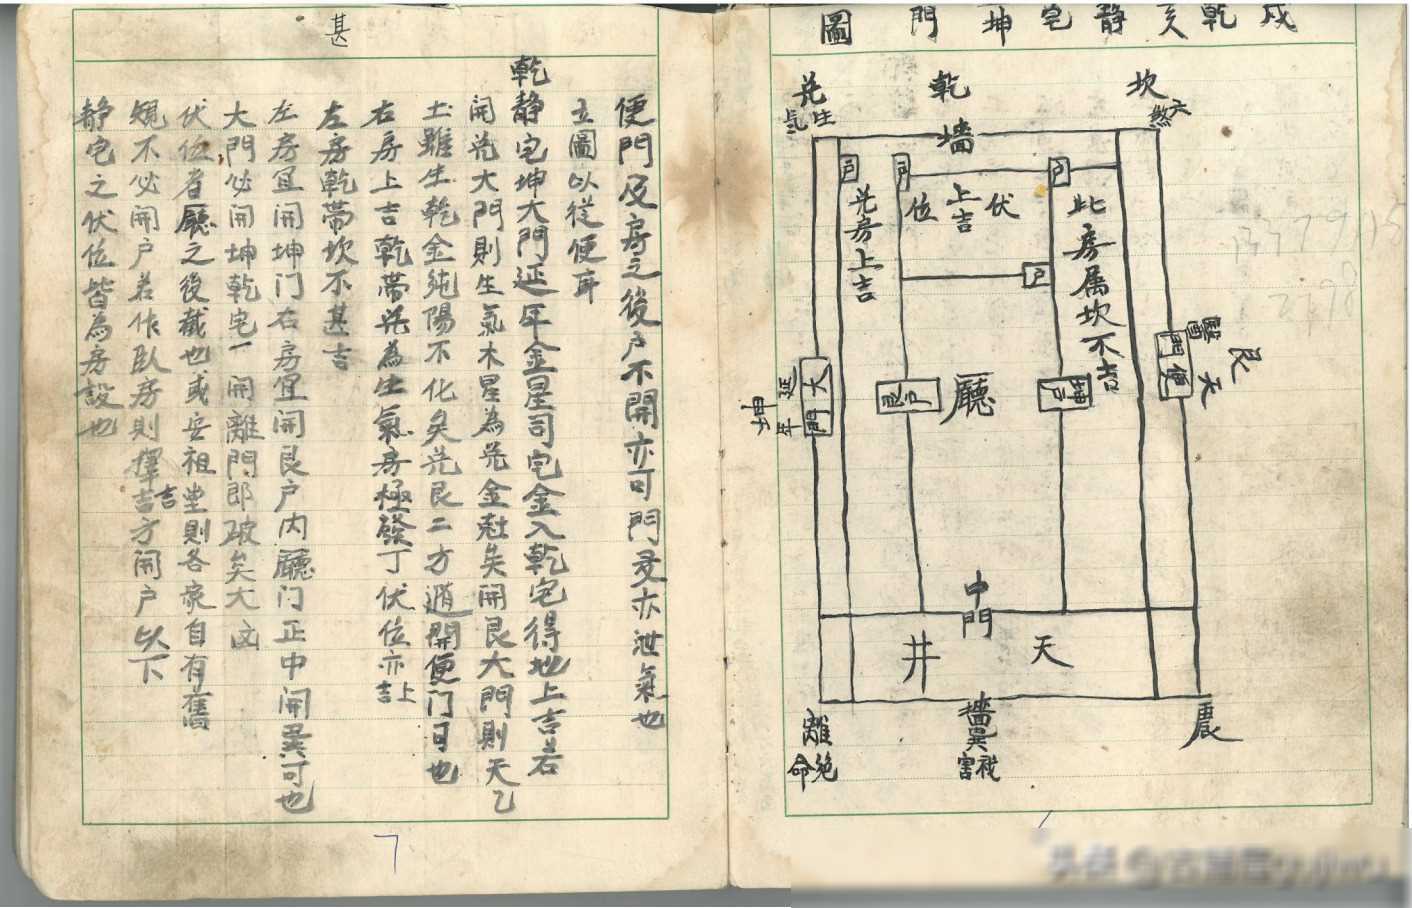 戌乾亥静宅坤門圖
坎
六煞
乾
兑
生氣
墙
户
户
户
伏位
上吉
兑房上吉
此房属坎不吉
户
大門
延年
坤
艮户
廳
坤户
便門
艮
天
中門
天井
離
絶命
墻
巽
禍害
震
便門及房之後户不開亦可門多亦泄氣也
立圖以從便耳
乾静宅坤大門延年金星司宅金入乾宅得地上吉若
開兑大門則生氣木星為兑金尅矣開艮大門則天乙
土雖生乾金純陽不化矣兑艮二方遁開便门可也
右房上吉乾帶兑為生氣房極發丁伏位亦上吉
左房乾帶坎不甚吉
左房宜開坤门右房宜開艮户内廳门正中開巽可也
大門必開坤乾宅一開離門郎破矣大凶
伏位者廳之後截也或安祖堂則各家自有舊
規不必開户若作臥房則擇吉方開户以下
静宅之伏位皆為房設也
甚
吉
7